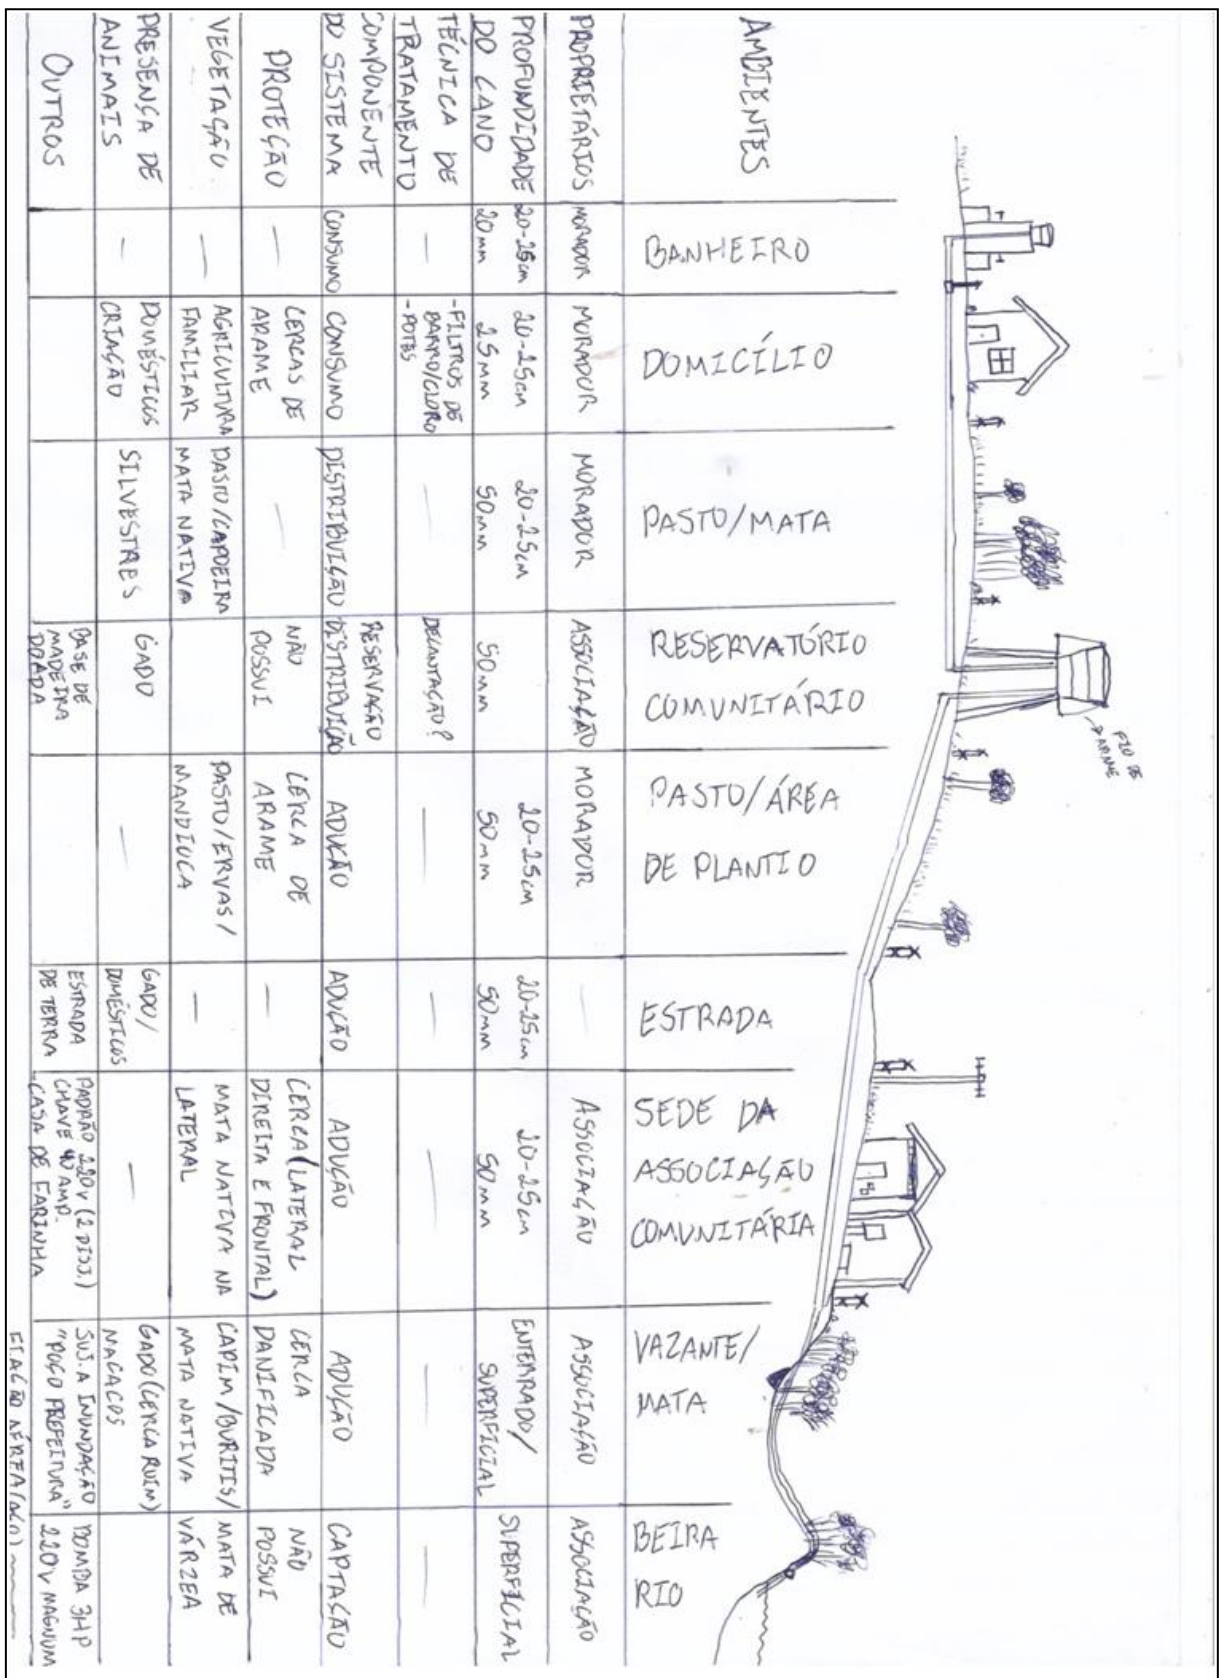 FIO DE
ARAME
AMBIENTES
BANHEIRO
DOMICÍLIO
PASTO/MATA
RESERVATÓRIO
COMUNITÁRIO
PASTO/ÁREA
DE PLANTIO
ESTRADA
SEDE DA
ASSOCIAÇÃO
COMUNITÁRIA
VAZANTE/
MATA
BEIRA
RIO
PROPRIETÁRIOS
MORADOR
MORADOR
MORADOR
ASSOCIAÇÃO
MORADOR
ASSOCIAÇÃO
ASSOCIAÇÃO
ASSOCIAÇÃO
PROFUNDIDADE
DO CANO
20-25cm
20mm
20-25cm
25mm
20-25cm
50mm
50mm
20-25cm
50mm
20-25cm
50mm
20-25cm
50mm
ENTERRADO/
SUPERFICIAL
SUPERFICIAL
TÉCNICA DE
TRATAMENTO
—
-FILTROS DE
BARRO/CLORO
-POTES
—
DECANTAÇÃO?
—
—
—
—
—
COMPONENTE
DO SISTEMA
CONSUMO
CONSUMO
DISTRIBUIÇÃO
RESERVAÇÃO
DISTRIBUIÇÃO
ADUÇÃO
ADUÇÃO
ADUÇÃO
ADUÇÃO
CAPTAÇÃO
PROTEÇÃO
—
CERCAS DE
ARAME
—
NÃO
POSSUI
CERCA DE
ARAME
—
CERCA (LATERAL
DIREITA E FRONTAL)
CERCA
DANIFICADA
NÃO
POSSUI
VEGETAÇÃO
—
AGRICULTURA
FAMILIAR
PASTO/CAPOEIRA
MATA NATIVA
PASTO/ERVAS/
MANDIOCA
—
MATA NATIVA NA
LATERAL
CAPIM/BURITIS/
MATA NATIVA
MATA DE
VÁRZEA
PRESENÇA DE
ANIMAIS
—
DOMÉSTICOS
CRIAÇÃO
SILVESTRES
GADO
—
GADO/
DOMÉSTICOS
—
GADO (CERCA RUIM)
MACACOS
OUTROS
BASE DE
MADEIRA
DOADA
ESTRADA
DE TERRA
PADRÃO 220V (2 DISJ.)
CHAVE 40 AMP.
-CASA DE FARINHA
SUJ. A INUNDAÇÃO
"POÇO PREFEITURA"
BOMBA 3HP
220V MAGNUM
FIAÇÃO AÉREA